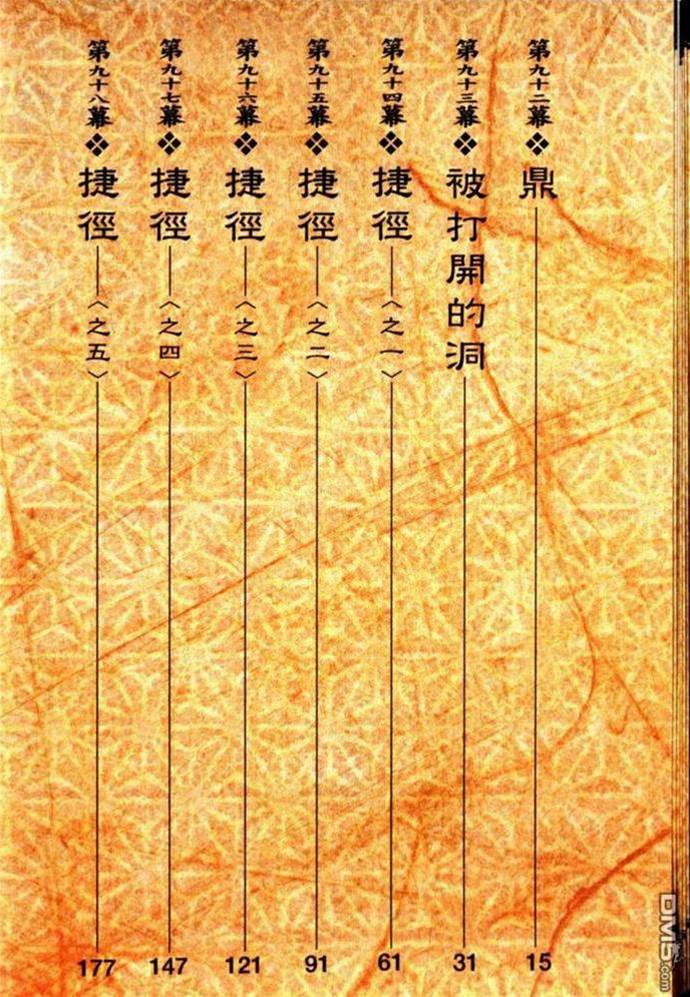 第九十二幕❖鼎 15
第九十三幕❖被打開的洞 31
第九十四幕❖捷徑—〈之一〉 61
第九十五幕❖捷徑—〈之二〉 91
第九十六幕❖捷徑—〈之三〉 121
第九十七幕❖捷徑—〈之四〉 147
第九十八幕❖捷徑—〈之五〉 177
DM5.com